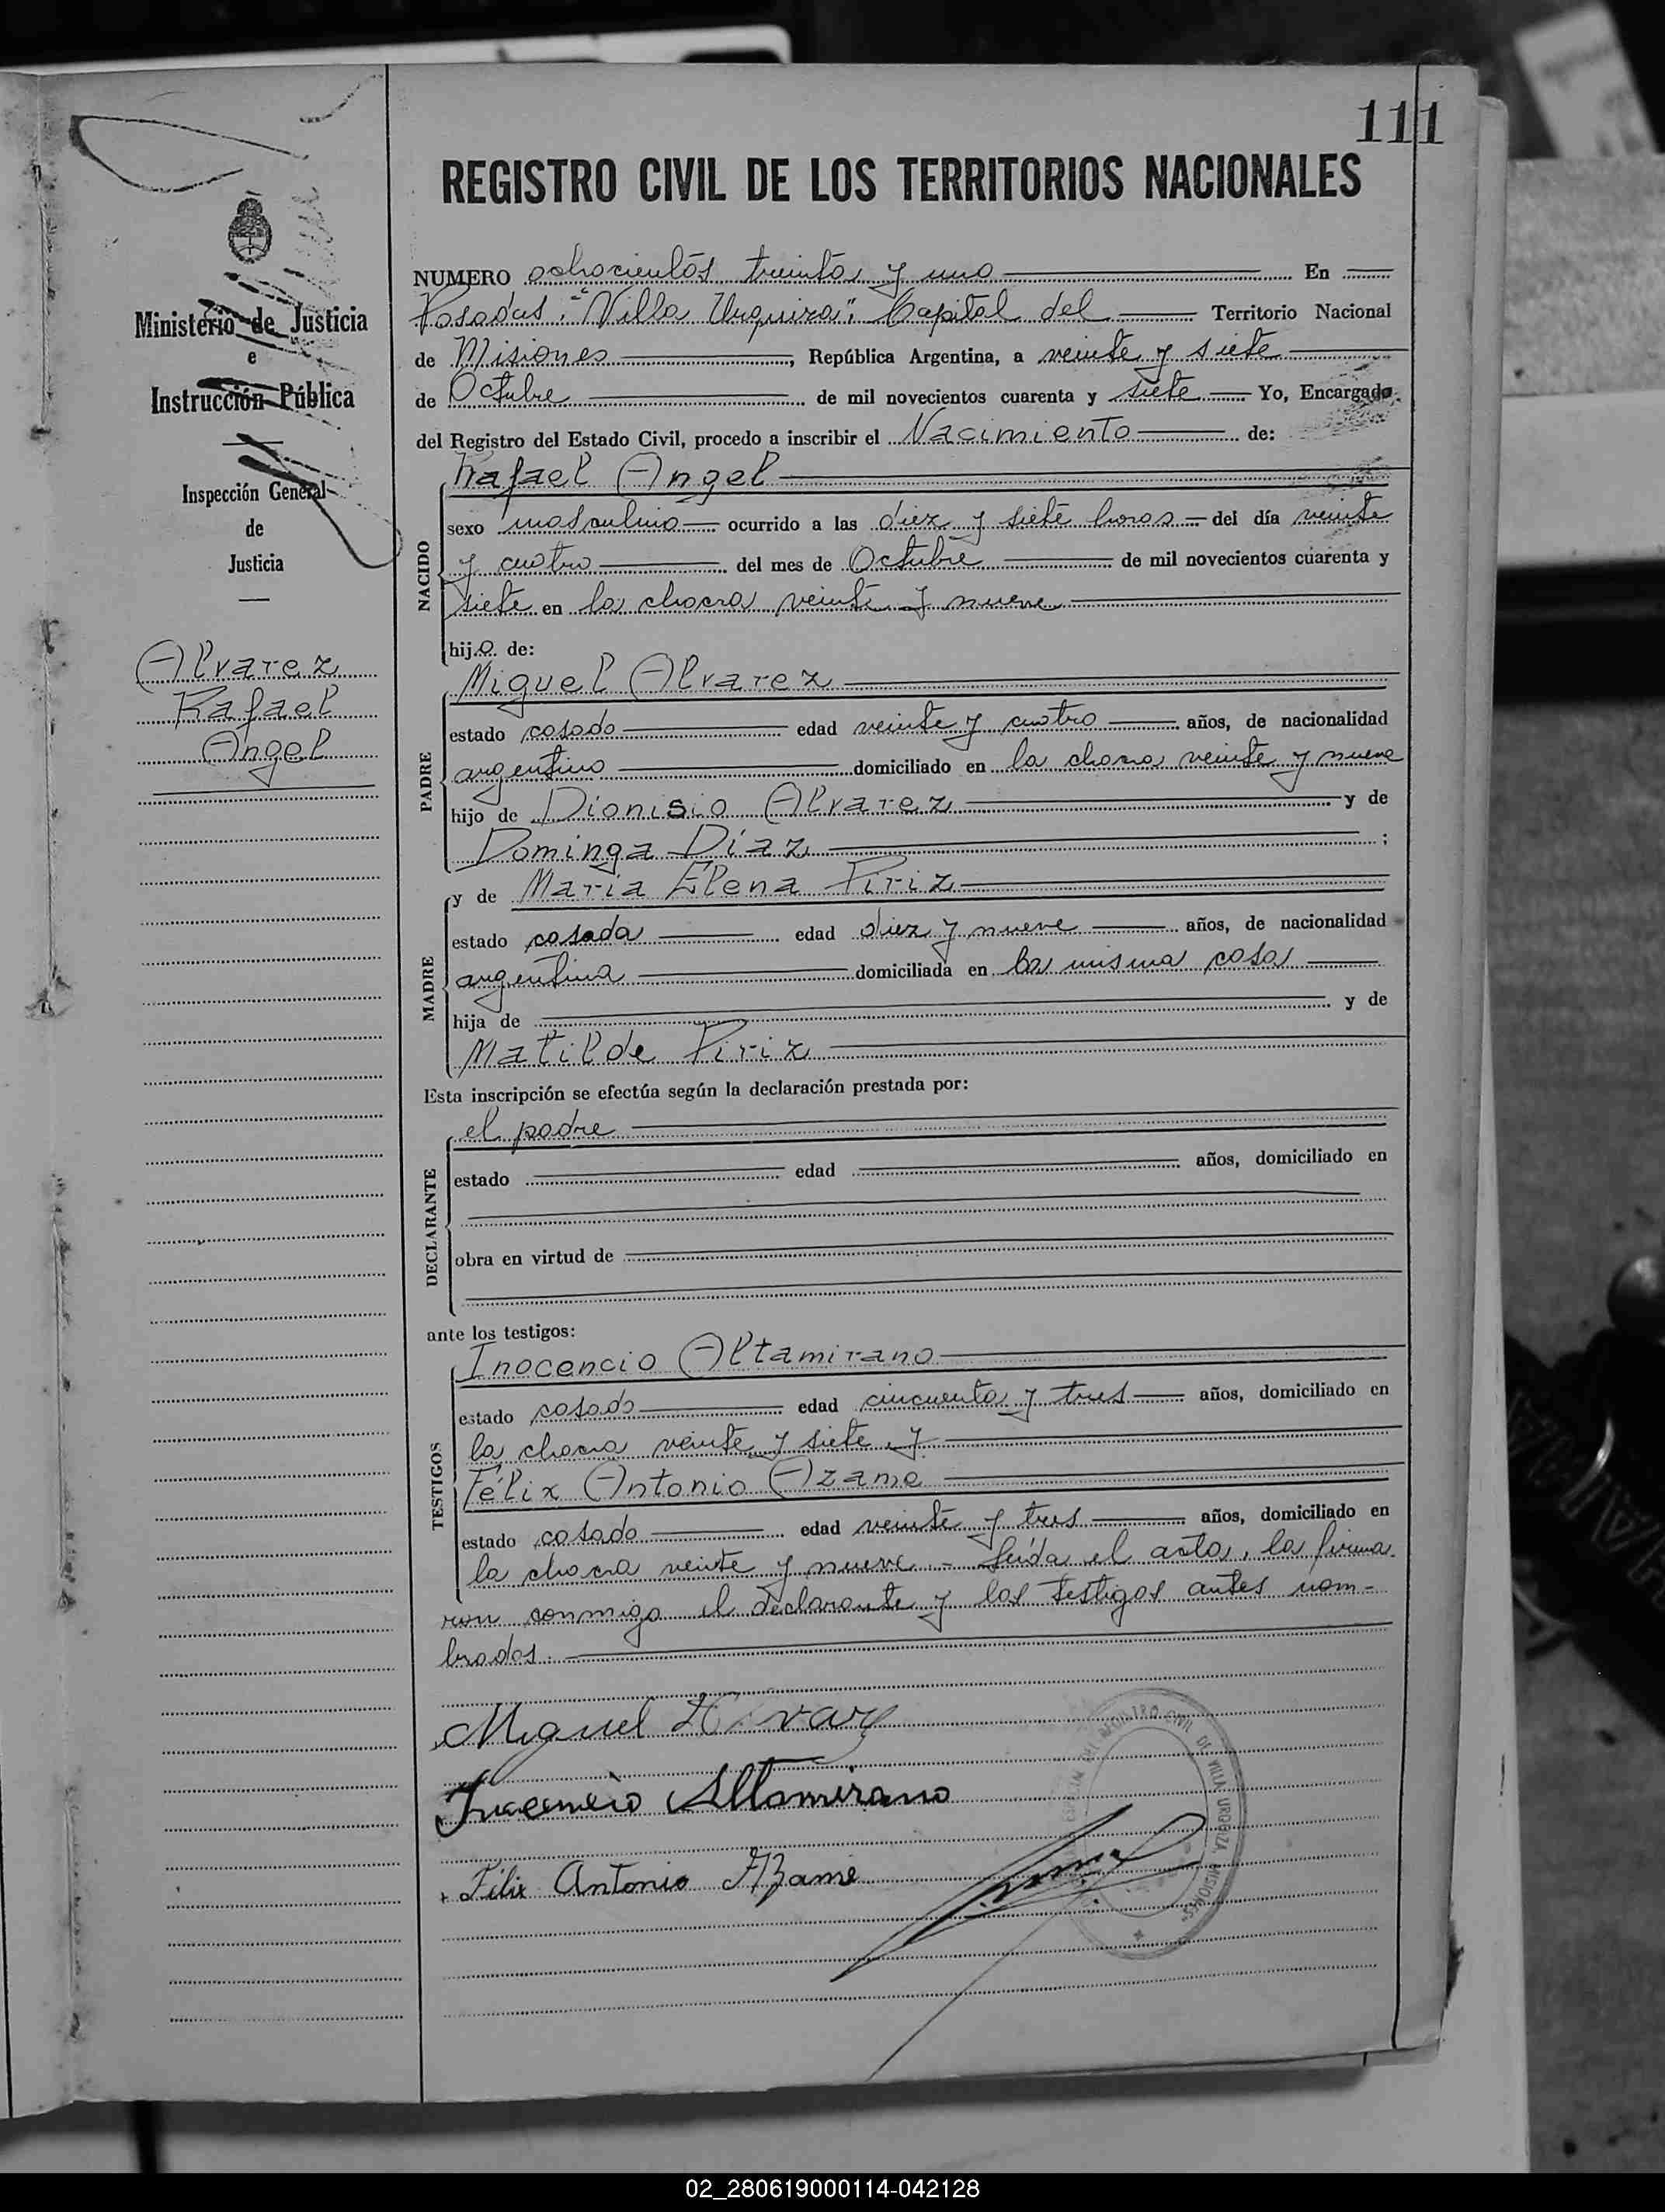 111
REGISTRO CIVIL DE LOS TERRITORIOS NACIONALES
Ministerio de Justicia
e
Instrucción Pública
Inspección General
de
Justicia
Alvarez
Rafael
Angel
NUMERO ochocientos treinta y uno En
Posadas: "Villa Urquiza": Capital del Territorio Nacional
de Misiones, República Argentina, a veinte y siete
de Octubre de mil novecientos cuarenta y siete Yo, Encargado
del Registro del Estado Civil, procedo a inscribir el Nacimiento de:
Rafael Angel
NACIDO
sexo masculino ocurrido a las diez y siete horas del día veinte
y cuatro del mes de Octubre de mil novecientos cuarenta y
siete en la chacra veinte y nueve
hijo de:
Miguel Alvarez
PADRE
estado casado edad veinte y cuatro años, de nacionalidad
argentino domiciliado en la chacra veinte y nueve
hijo de Dionisio Alvarez y de
Dominga Díaz ;
y de María Elena Piriz
MADRE
estado casada edad diez y nueve años, de nacionalidad
argentina domiciliada en la misma casa
hija de y de
Matilde Piriz
Esta inscripción se efectúa según la declaración prestada por:
el padre
DECLARANTE
estado edad años, domiciliado en
obra en virtud de
ante los testigos:
Inocencio Altamirano
TESTIGOS
estado casado edad cincuenta y tres años, domiciliado en
la chacra veinte y siete y
Félix Antonio Azame
estado casado edad veinte y tres años, domiciliado en
la chacra veinte y nueve.- Leída el acta, la firma
ron conmigo el declarante y los testigos antes nom-
brados.
Miguel Alvarez
Inocencio Altamirano
Félix Antonio Azame
DEL REGISTRO CIVIL DE VILLA URQUIZA, MISIONES
02_280619000114-042128